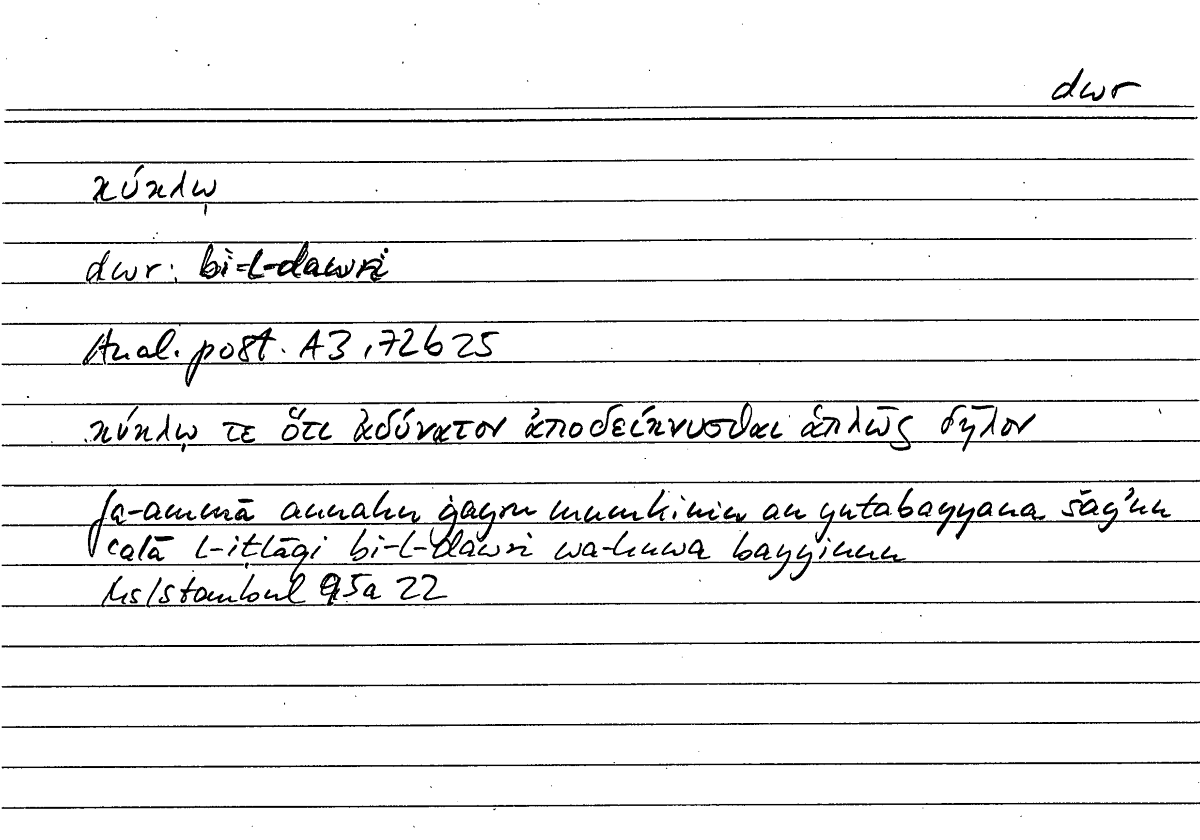 dwr
κύκλῳ
dwr: bi-l-dawri
Anal. post. A3, 72b25
κύκλῳ τε ὅτι ἀδύνατον ἀποδείκνυσθαι ἁπλῶς δῆλον
fa-ammā annahu ġayru mumkinin an yutabayyana šay'un
ʿalā l-iṭlāqi bi-l-dawri wa-huwa bayyinun
Ms Istanbul 95a 22